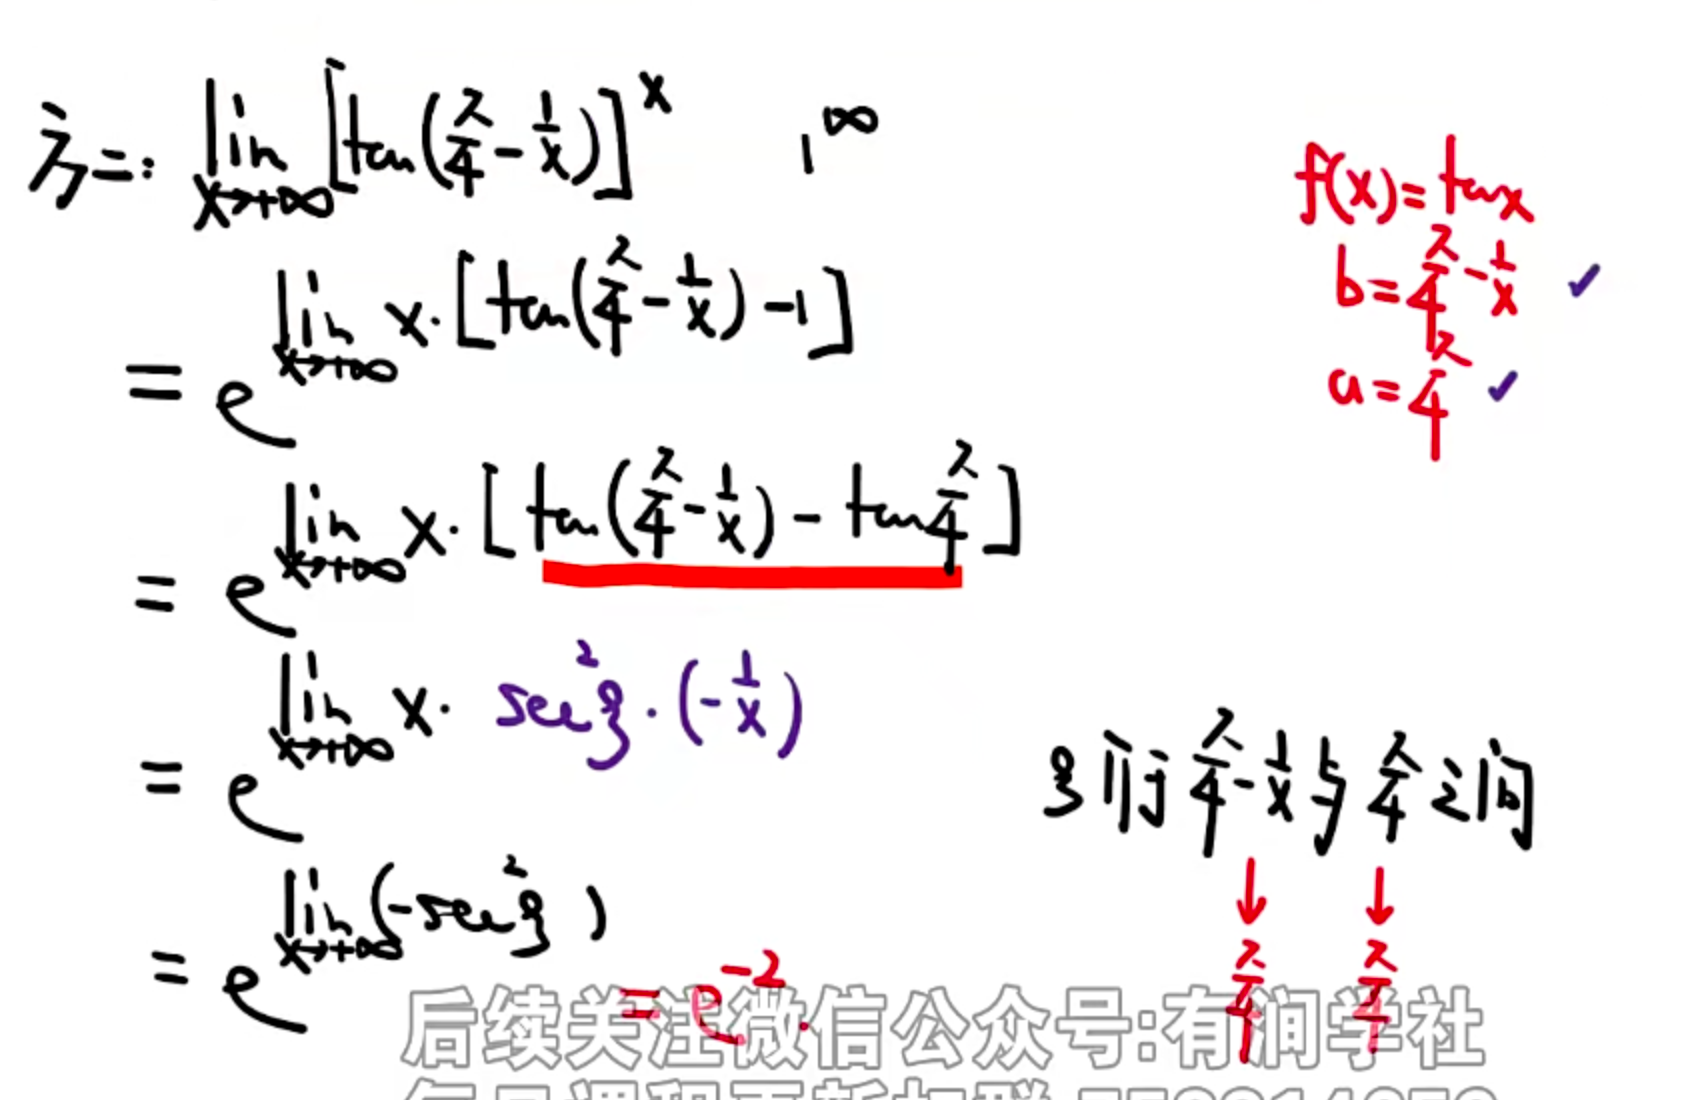 方二: lim x→+∞ [tan(π/4 - 1/x)]^x 1^∞
= e^{lim x→+∞ x·[tan(π/4 - 1/x) - 1]}
= e^{lim x→+∞ x·[tan(π/4 - 1/x) - tan π/4]}
= e^{lim x→+∞ x·sec²ξ·(-1/x)}
= e^{lim x→+∞ (-sec²ξ)} = e^{-2}.
f(x)=tanx
b=π/4 - 1/x ✓
a=π/4 ✓
ξ介于 π/4 - 1/x 与 π/4 之间
↓ ↓
π/4 π/4
后续关注微信公众号:有润学社